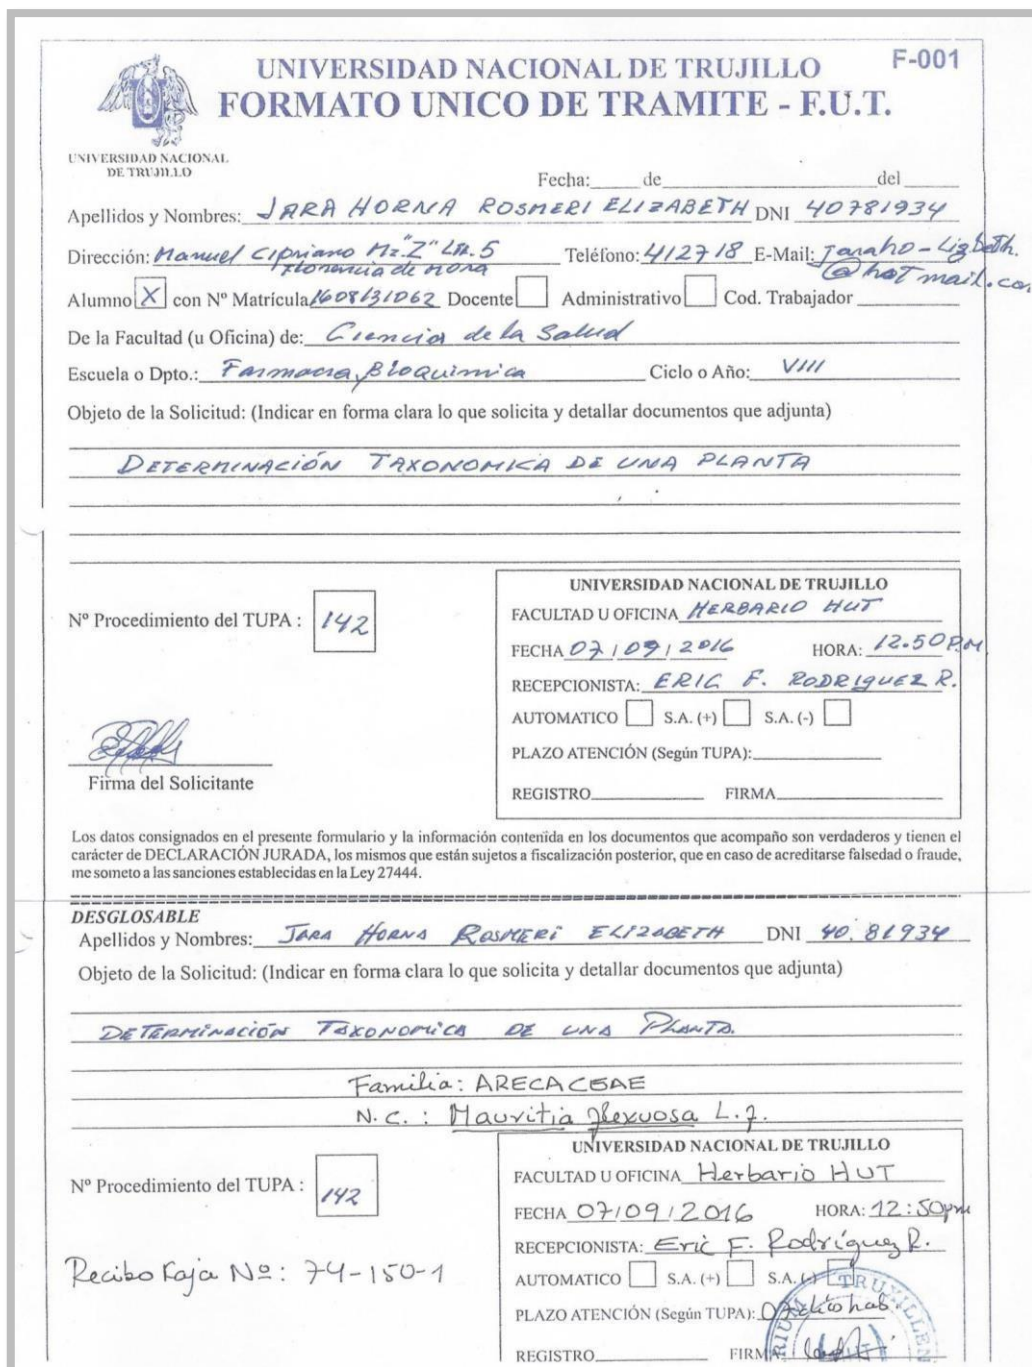 F-001
UNIVERSIDAD NACIONAL DE TRUJILLO
FORMATO UNICO DE TRAMITE - F.U.T.
UNIVERSIDAD NACIONAL
DE TRUJILLO
Fecha:____ de____________________del_____
Apellidos y Nombres: JARA HORNA ROSMERI ELIZABETH DNI 40781934
Dirección: Manuel Cipriano Mz."Z" Lte. 5 Teléfono: 412718 E-Mail: Jaraho-Lizbeth.
Florencia de Mora @hotmail.com
Alumno X con Nº Matrícula 1608131062 Docente Administrativo Cod. Trabajador
De la Facultad (u Oficina) de: Ciencia de la Salud
Escuela o Dpto.: Farmacia, Bioquimica Ciclo o Año: VIII
Objeto de la Solicitud: (Indicar en forma clara lo que solicita y detallar documentos que adjunta)
DETERMINACIÓN TAXONOMICA DE UNA PLANTA
Nº Procedimiento del TUPA : 142
UNIVERSIDAD NACIONAL DE TRUJILLO
FACULTAD U OFICINA HERBARIO HUT
FECHA 07/09/2016 HORA: 12.50 P.M
RECEPCIONISTA: ERIC F. RODRIGUEZ R.
AUTOMATICO S.A. (+) S.A. (-)
PLAZO ATENCIÓN (Según TUPA):
REGISTRO FIRMA
Firma del Solicitante
Los datos consignados en el presente formulario y la información contenida en los documentos que acompaño son verdaderos y tienen el
carácter de DECLARACIÓN JURADA, los mismos que están sujetos a fiscalización posterior, que en caso de acreditarse falsedad o fraude,
me someto a las sanciones establecidas en la Ley 27444.
DESGLOSABLE
Apellidos y Nombres: JARA HORNA ROSMERI ELIZABETH DNI 40.81934
Objeto de la Solicitud: (Indicar en forma clara lo que solicita y detallar documentos que adjunta)
DETERMINACIÓN TAXONOMICA DE UNA PLANTA.
Familia: ARECACEAE
N.C. : Mauritia flexuosa L.f.
Nº Procedimiento del TUPA : 142
Recibo Kaja Nº: 74-150-1
UNIVERSIDAD NACIONAL DE TRUJILLO
FACULTAD U OFICINA Herbario HUT
FECHA 07/09/2016 HORA: 12:50pm
RECEPCIONISTA: Eric F. Rodríguez R.
AUTOMATICO S.A. (+) S.A. (-)
PLAZO ATENCIÓN (Según TUPA):
REGISTRO FIRMA